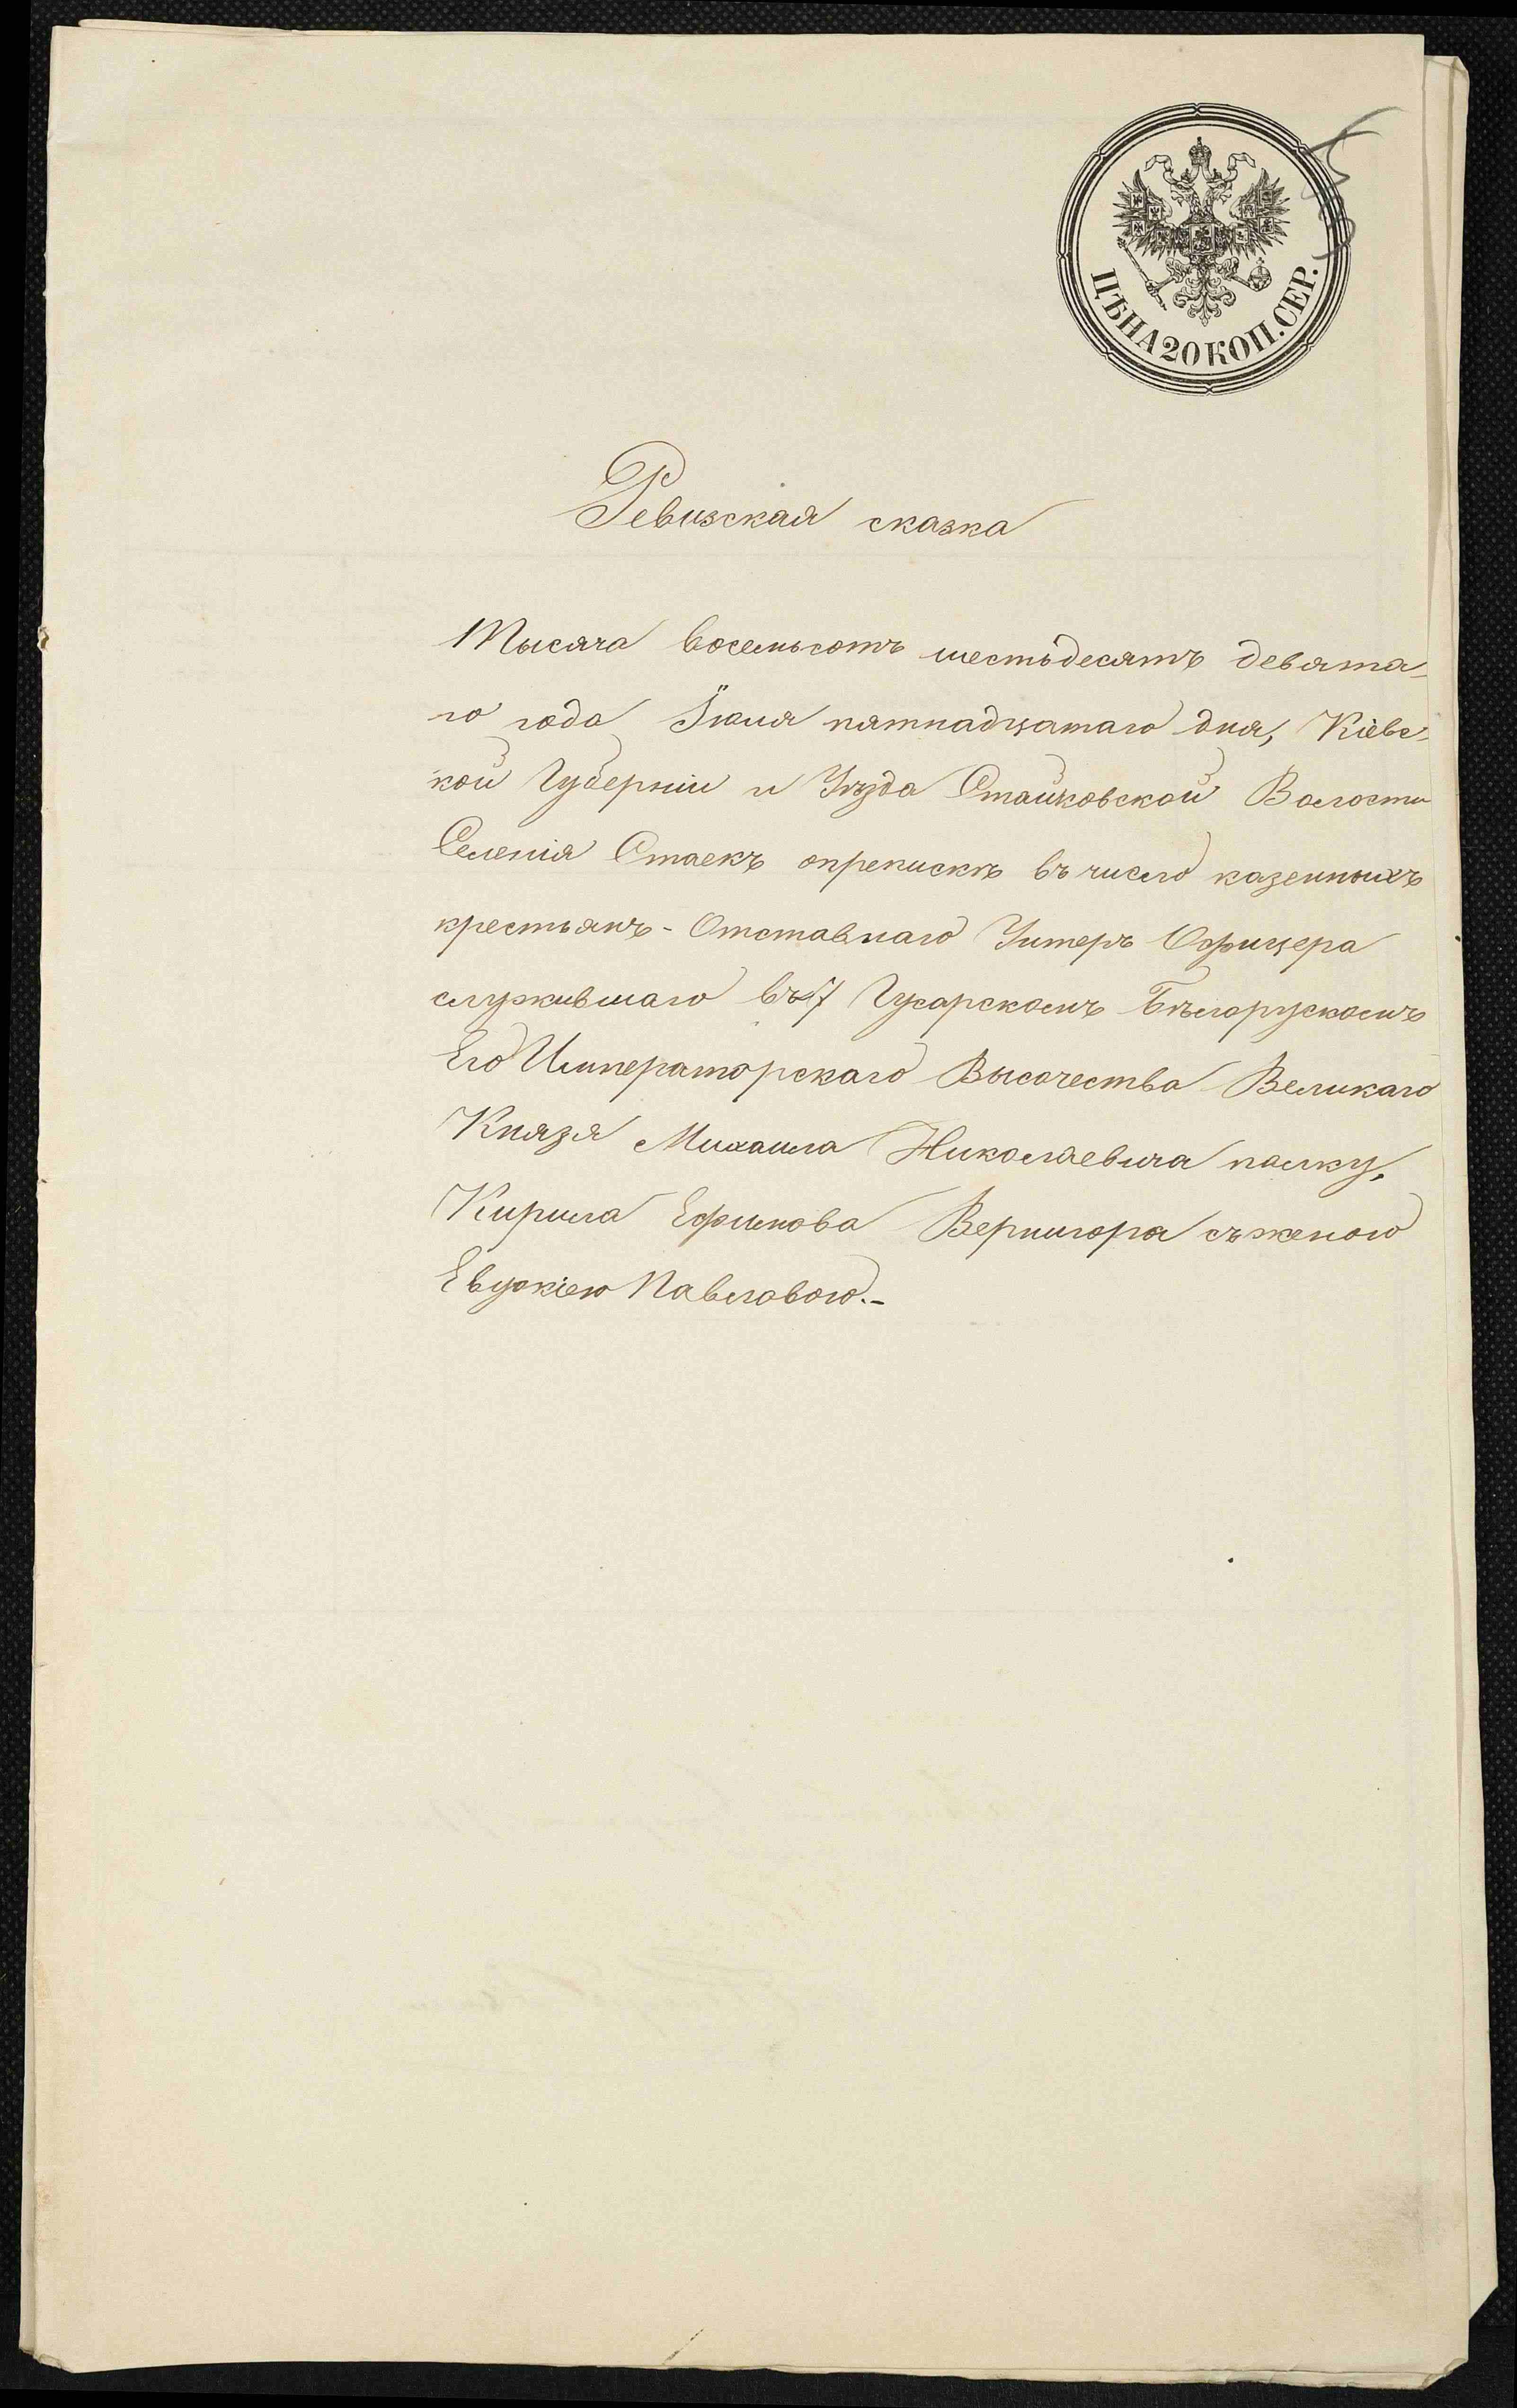 ЦѢНА 20 КОП. СЕР.
Ревизская сказка
Тысяча восемьсотъ шестьдесятъ девята-
го года Іюля пятнадцатаго дня, Кіевс-
кой Губерніи и Уѣзда Стайковской Волости
Селенія Стаекъ опрепискѣ въ число казенныхъ
крестьянъ - Отставнаго Унтеръ Офицера
служившаго въ 7 Гусарскомъ Бѣлорускомъ
Его Императорскаго Высочества Великаго
Князя Михаила Николаевича полку,
Кирила Ефимова Вернигора съ женою
Евдокіею Павловою.-